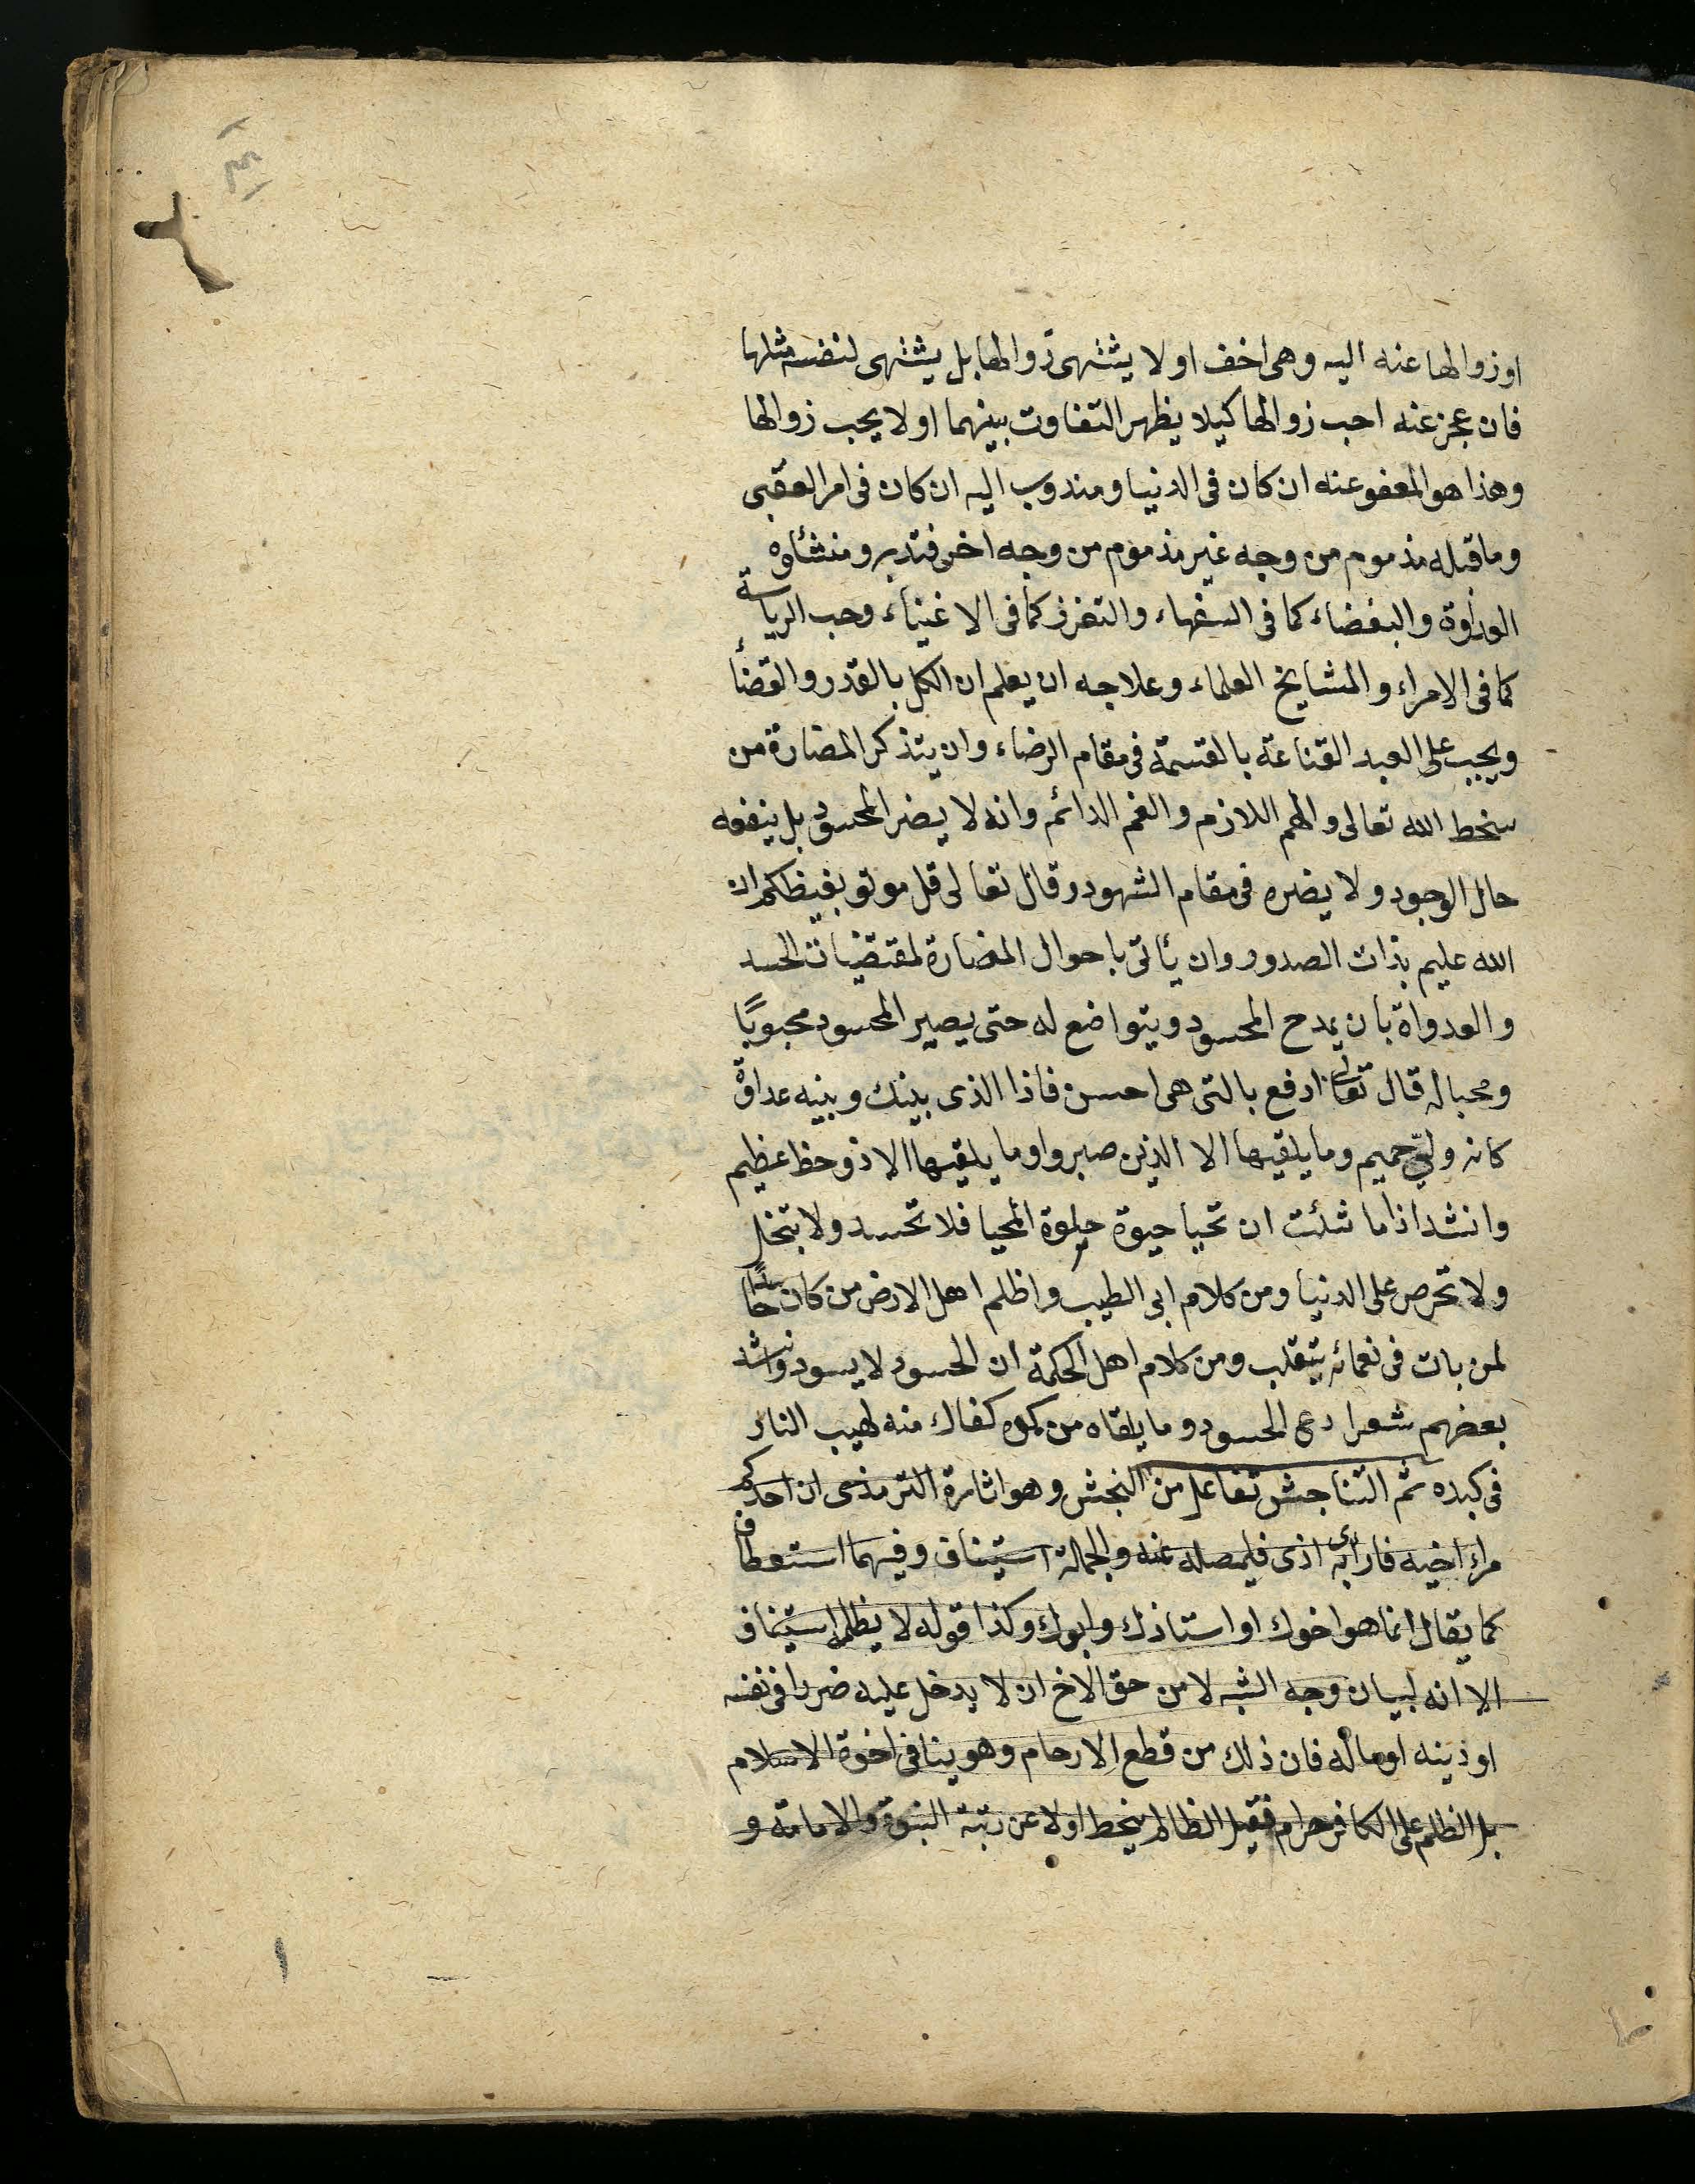 او زوالها عنه اليه وهى اخف او لا يشتهى زوالها بل يشتهى لنفسه مثلها
فان عجز عنه احب زوالها كيلا يظهر التفاوت بينهما او لا يحب زوالها
وهذا هو المعفو عنه ان كان فى الدنيا ومندوب اليه ان كان فى امر العقبى
وما قبله مذموم من وجه غير مذموم من وجه اخر فتدبر ومنشئاوه
العداوة والبغضاء كما فى السفهاء والتعزز كما فى الاغنياء وحب الرياسة
كما فى الامراء والمشايخ العلماء وعلاجه ان يعلم ان الكل بالقدر والقضأ
ويجب على العبد القناعة بالقسمة فى مقام الرضاء وان يتذكر المضارة من
سخط الله تعالى والهم اللازم والغم الدائم وانه لا يضر المحسود بل ينفعه
حال الوجود ولا يضره فى مقام الشهود وقال تعالى قل موتو بغيظكم ان
الله عليم بذات الصدور وان يأتى باحوال المضارة لمقتضيات الحسد
والعدواة بان يمدح المحسود ويتواضع له حتى يصير المحسود محبوبًا
ومحبا له قال تعالى ادفع بالتى هى احسن فاذا الذى بينك وبينه عداوة
كانه وليّ حميم وما يلقيها الا الذين صبروا وما يلقيها الا ذو حظ عظيم
وانشد اذا ما شئت ان تحيا حيوة حلوة المحيا فلا تحسد ولا تبخل
ولا تحرص على الدنيا ومن كلام ابى الطيب واظلم اهل الارض من كان حاسدًا
لمن بات فى نعمائه يتقلب ومن كلام اهل الحكمة ان الحسود لا يسود وانشد
بعضهم شعرا دع الحسود وما يلقاه من كمده كفاك منه لهيب النار
فى كبده ثم التناجش تفاعل من النجش وهو اثارة الترمذى ان احدكم
مراة اخيه فان رأى به اذى فليمصله عنه والجملة استيناف وفيهما استعطاف
كما يقال انما هو اخوك او استاذك وابوك وكذا قوله لا يظلمه استيناف
الا انه لبيان وجه الشبه لا من حق الاخ ان لا يدخل عليه ضررا فى نفسه
او دينه او ماله فان ذلك من قطع الارحام وهو ينافى اخوة الاسلام
بل الظلم على الكافر حرام فقيل الظالم ينحط اولا عن رتبة النبوة والامامة و
١